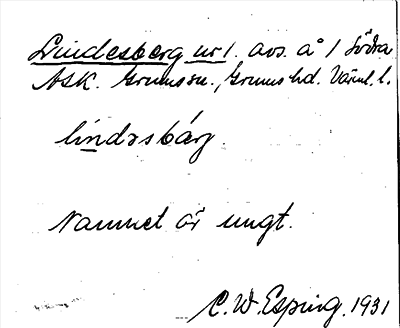 Lindesberg nr 1. avs. å 1 Södra
Ask. Grumssn., Grums hd. Värml. l.
lindəsbárg.
Namnet är ungt.
C. W. Esping. 1931